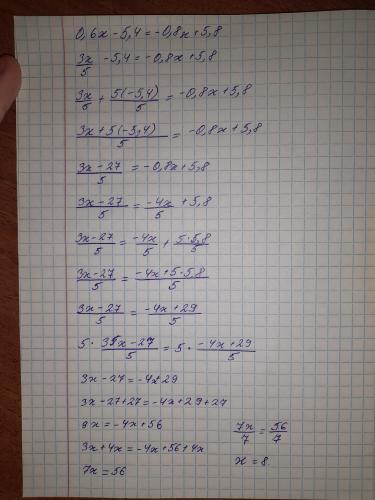 0,6x-5,4=-0,8x+5,8
3x/5 -5,4=-0,8x+5,8
3x/5 + 5(-5,4)/5 = -0,8x+5,8
3x+5(-5,4)/5 = -0,8x+5,8
3x-27/5 = -0,8x+5,8
3x-27/5 = -4x/5 + 5,8
3x-27/5 = -4x/5 + 5·5,8/5
3x-27/5 = -4x+5·5,8/5
3x-27/5 = -4x+29/5
5· 3x-27/5 = 5· -4x+29/5
3x-27=-4x+29
3x-27+27=-4x+29+27
3x=-4x+56
3x+4x=-4x+56+4x
7x=56
7x/7 = 56/7
x=8.